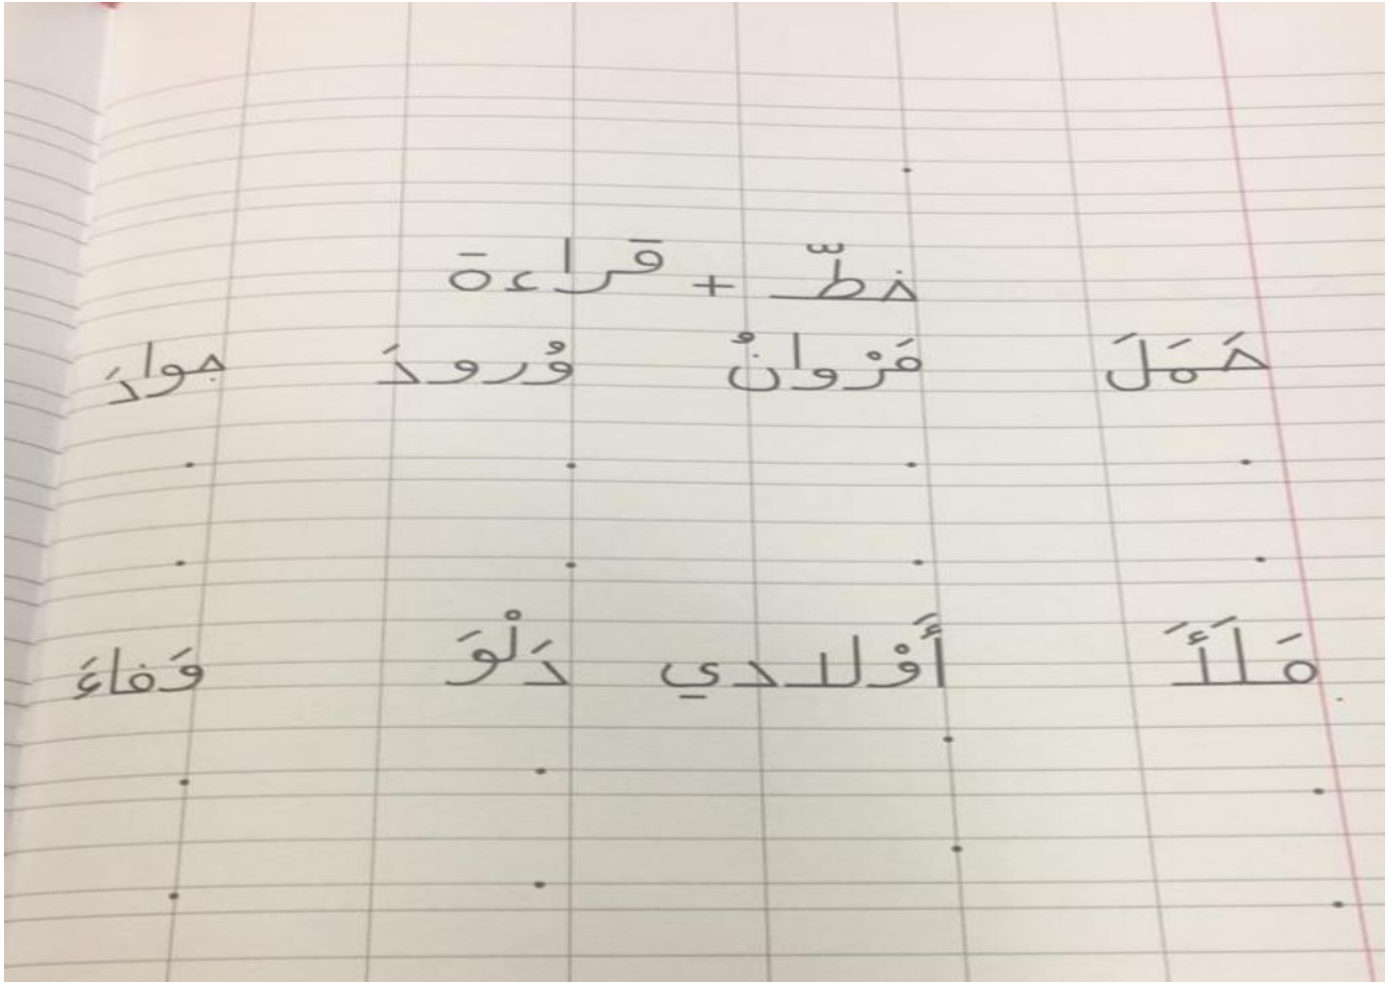 خطّ + قراءة
حَمَلَ مَرْوانُ وُرودَ جوادَ
مَلَأَ أَوْلادي دَلْوَ وَفاءَ